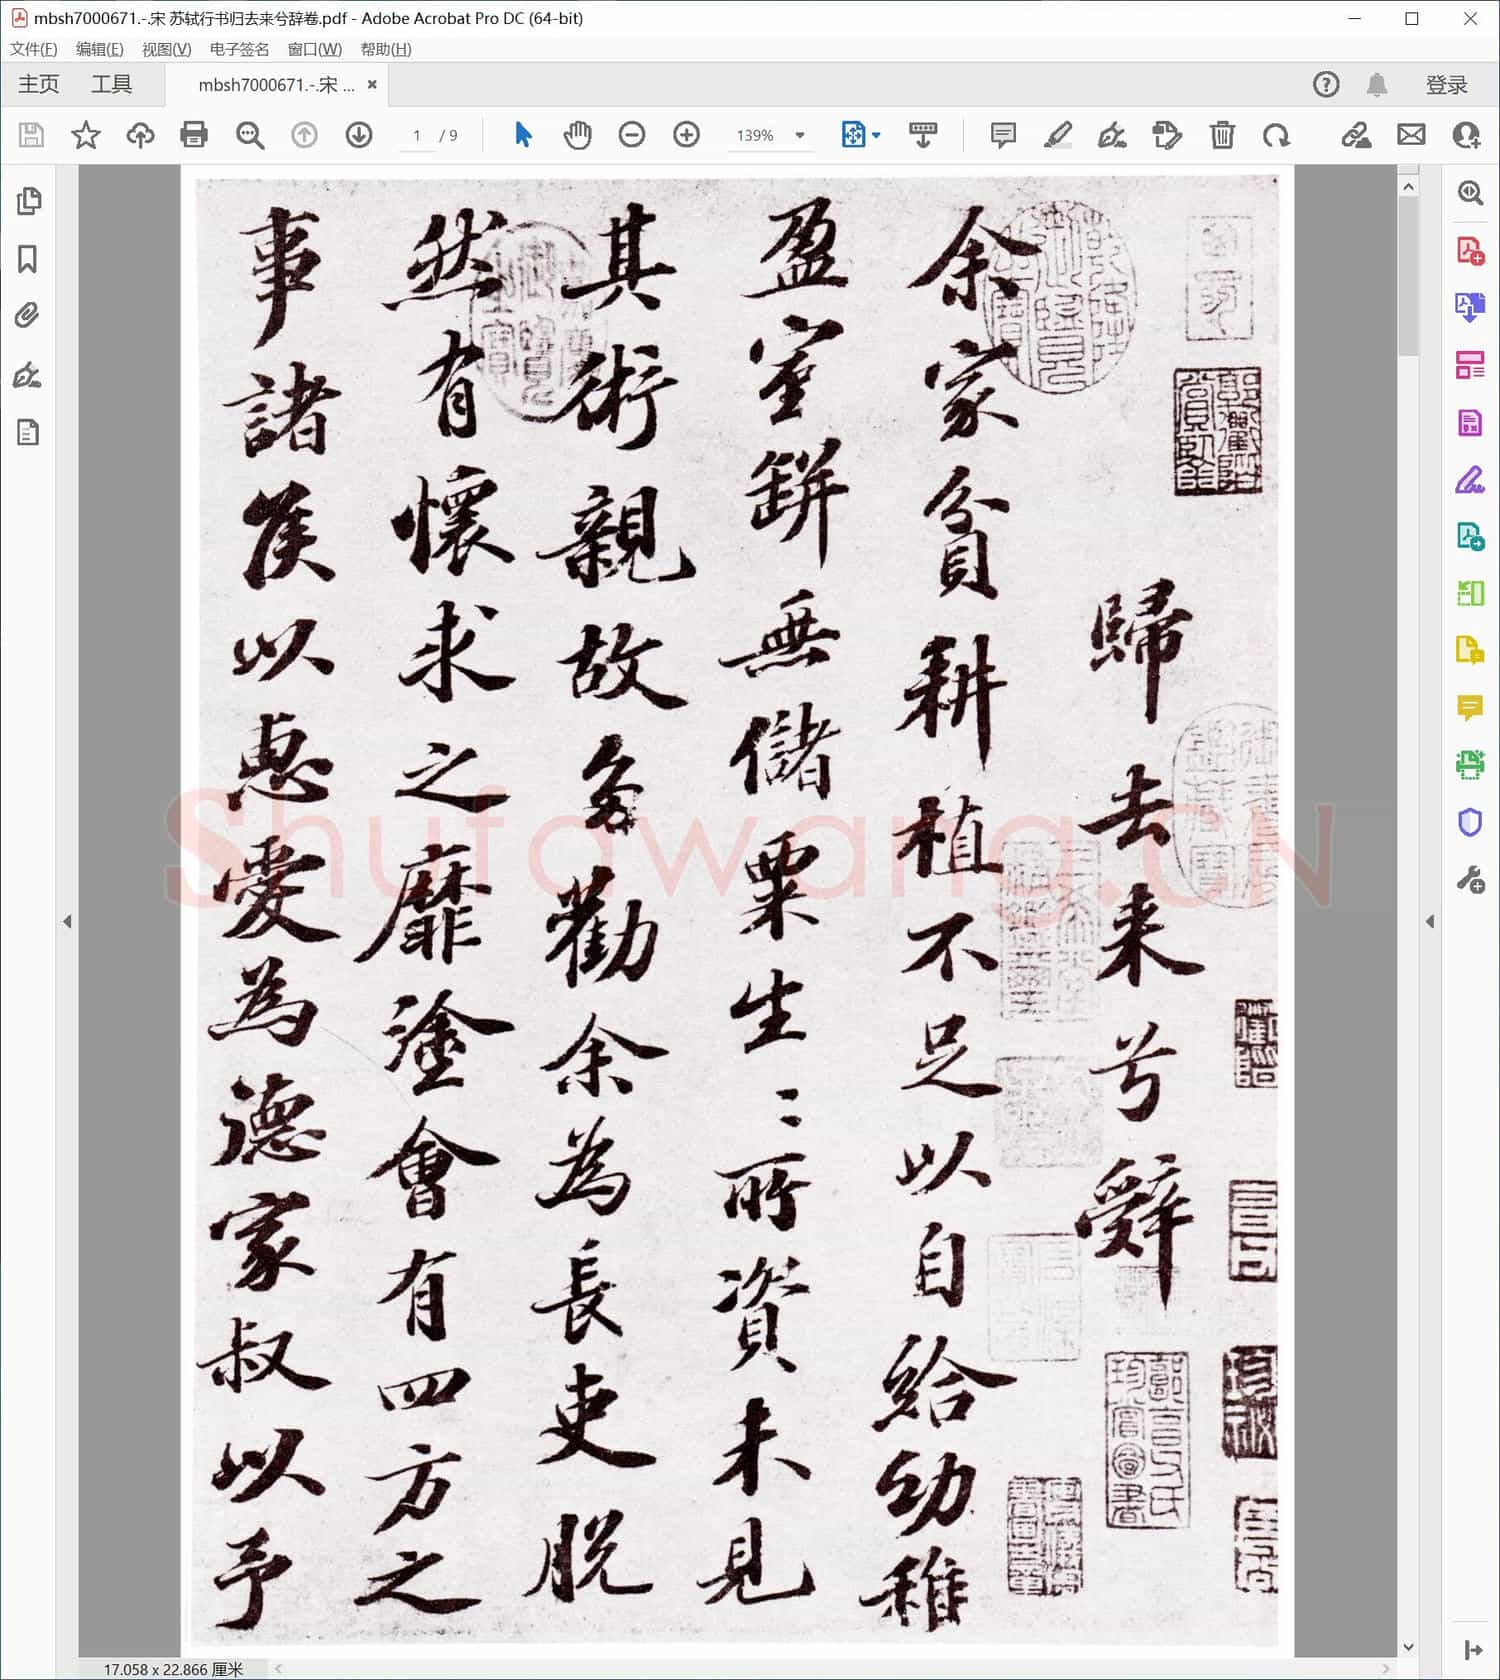 mbsh7000671.-.宋 苏轼行书归去来兮辞卷.pdf - Adobe Acrobat Pro DC (64-bit)
文件(F) 编辑(E) 视图(V) 电子签名 窗口(W) 帮助(H)
主页 工具 mbsh7000671.-.宋 ... 登录
1 / 9 139%
歸去来兮辭
余家貧耕植不足以自給幼稚
盈室缾無儲粟生〻所資未見
其術親故多勸余為長吏脱
然有懷求之靡塗會有四方之
事諸侯以惠愛為德家叔以予
Shufawang.CN
17.058 x 22.866 厘米